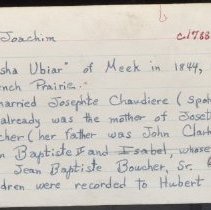 Joachim c.1788
sha Ubiar" of Meek in 1844,
nch Prairie.
arried Josephte Chaudiere (spo
already was the mother of Joset
cher (her father was John Clark
n Baptiste I and Isabel, whose
Jean Baptiste Boucher, Sr.
dren were recorded to Hubert